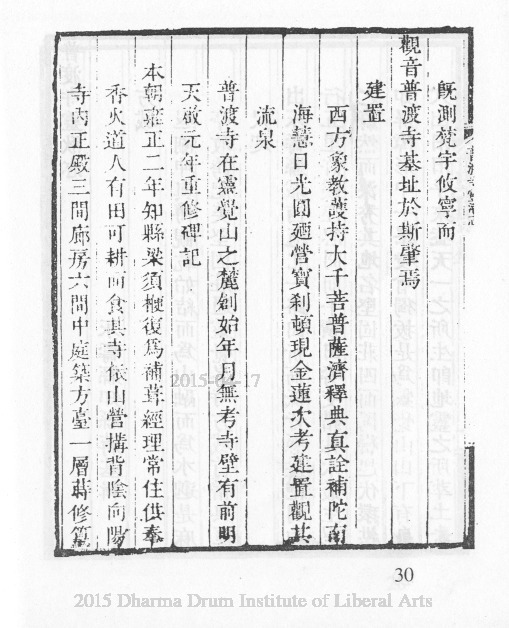 既測梵宇攸寧而
觀音普渡寺基址於斯肇焉
建置
西方象教護持大千菩薩濟釋典真詮補陀南
海慧日光圓廼營寶剎頓現金蓮次考建置觀其
流泉
普渡寺在靈覺山之麓創始年月無考寺壁有前明
天啟元年重修碑記
本朝雍正二年知縣梁須楩復為補葺經理常住供奉
香火道人有田可耕而食其寺依山營搆背陰向陽
寺內正殿三間廊房六間中庭築方臺一層蒔修篁
2015-04-17
30
2015 Dharma Drum Institute of Liberal Arts